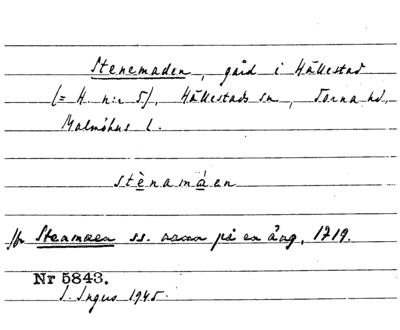 Stenemaden, gård i Hällestad
(= H. n:r 5), Hällestads sn, Torna hd,
Malmöhus l.
stènamáen
Jfr Stenmaen ss. namn på en äng, 1719.
Nr 5843.
I. Ingus 1945.